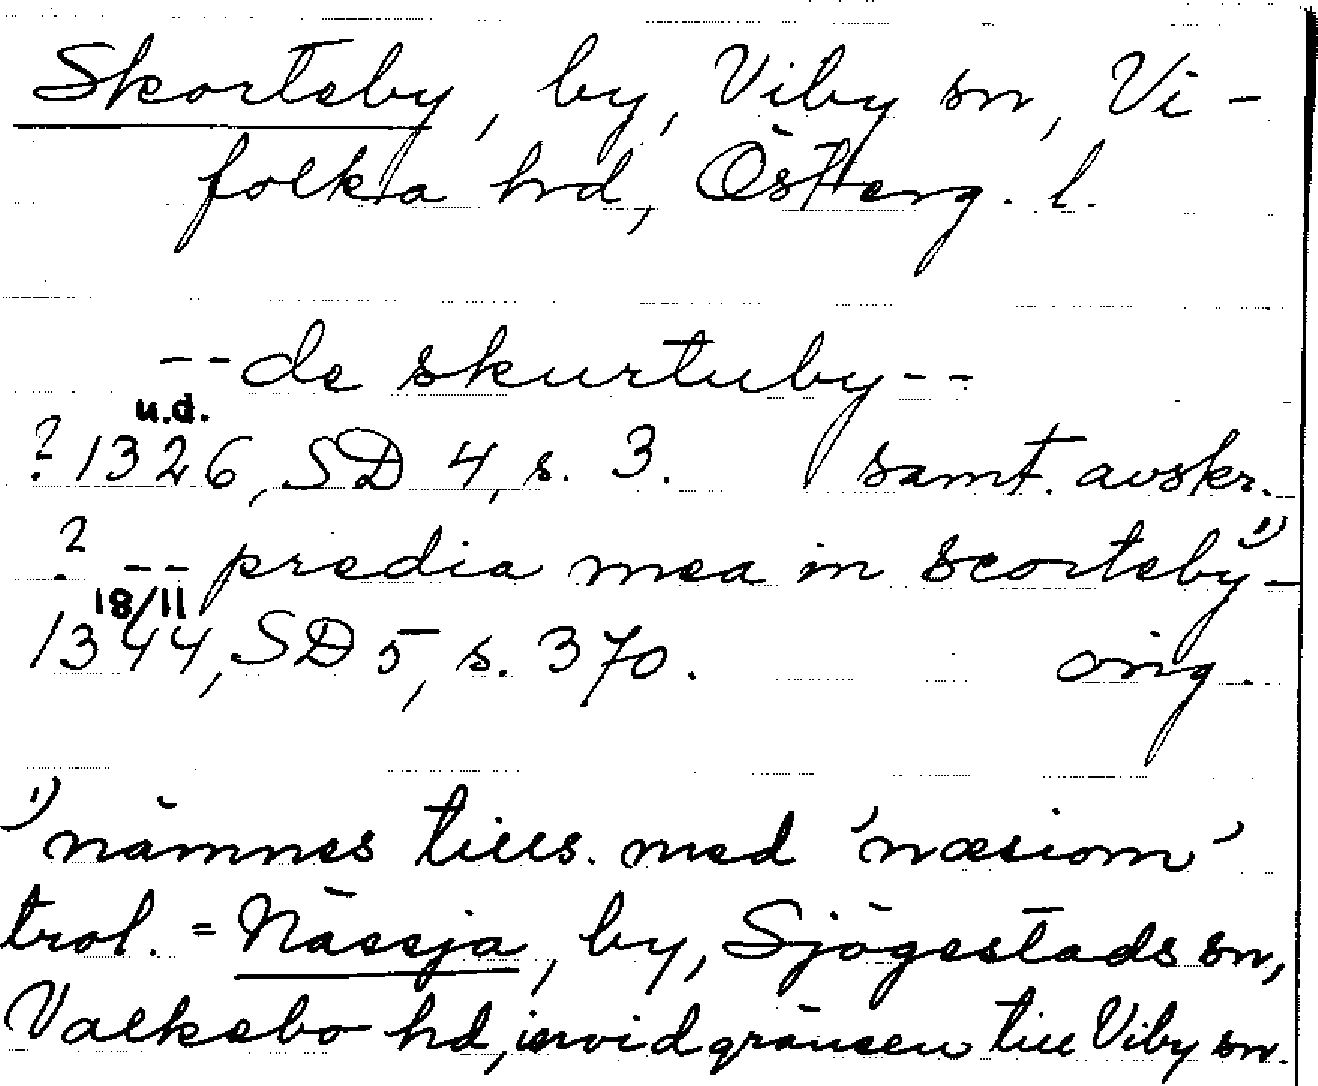 Skorteby, by, Viby sn, Vi-
folka hd, Österg. l.
-- de skurtuby --
u.d.
? 1326, SD 4, s. 3. samt. avskr.
? -- predia mea in scorteby 1) -
18/11
1344, SD 5, s. 370. orig.
1) nämnes tills. med 'næsiom'
trol. = Nässja, by, Sjögestads sn,
Valkebo hd, invid gränsen till Viby sn.